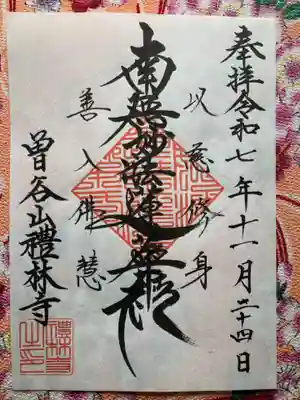 奉拝令和七年十一月二十四日
以慈修身
南無妙法蓮華経
善入佛慧
曽谷山禮林寺